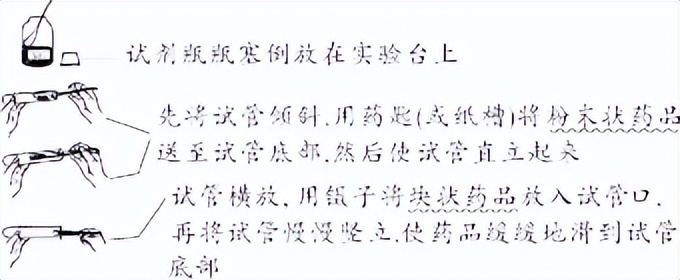 试剂瓶瓶塞倒放在实验台上
先将试管倾斜,用药匙(或纸槽)将粉末状药品
送至试管底部,然后使试管直立起来
试管横放,用镊子将块状药品放入试管口,
再将试管慢慢竖立,使药品缓缓地滑到试管
底部